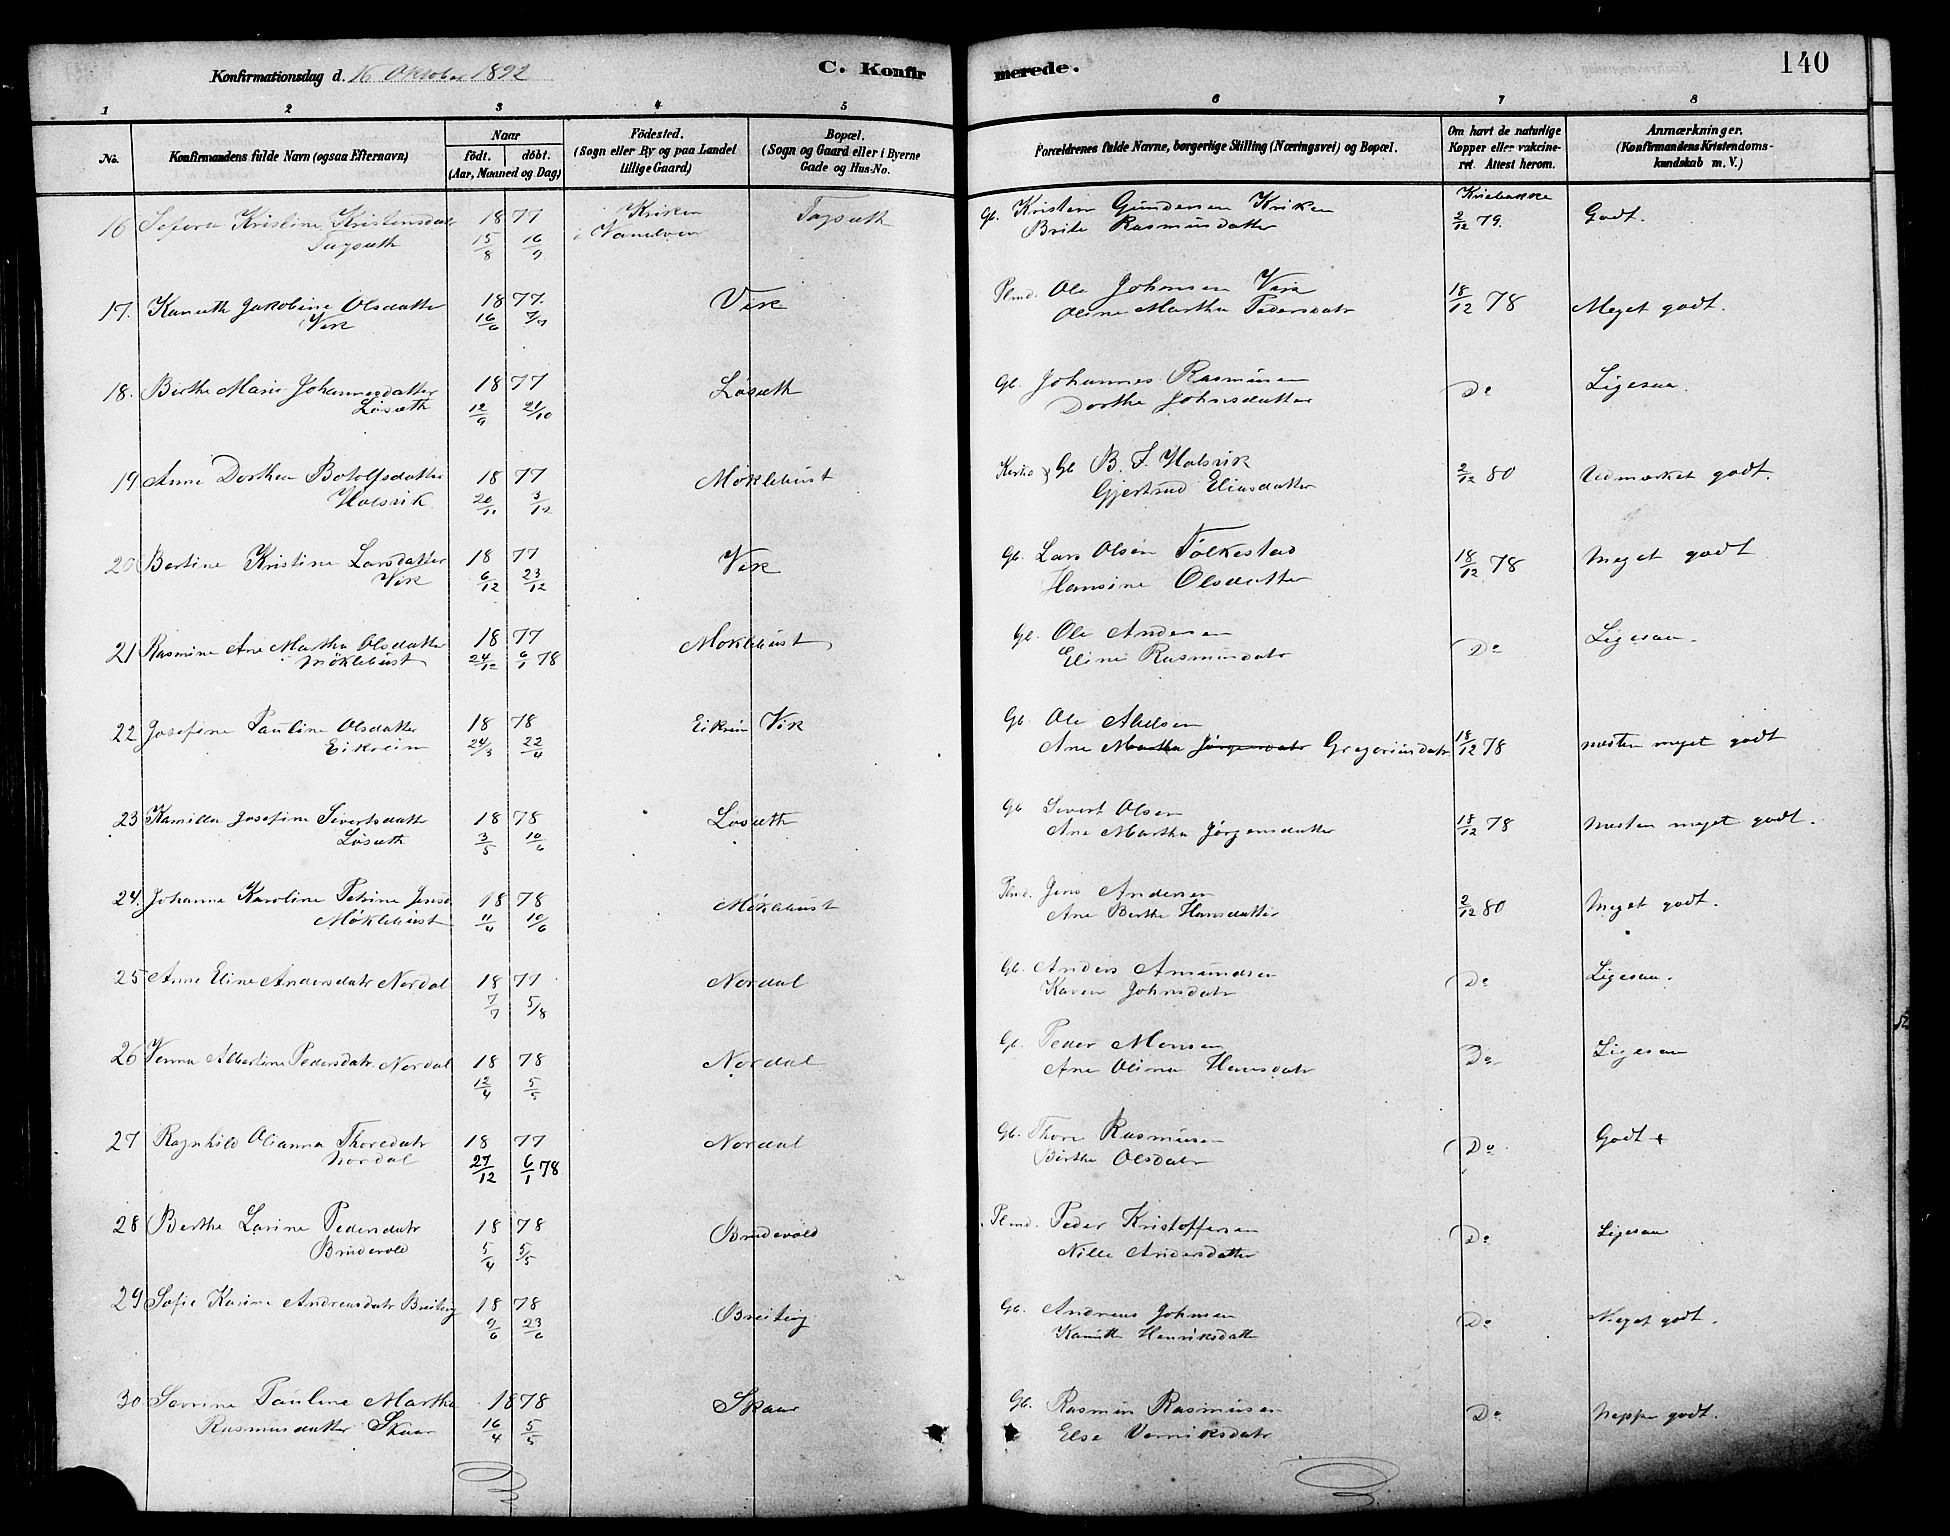 Konfirmationsdag d. 16 Oktober 1892
C. Konfirmerede.
140
1 2 3 4 5 6 7 8
No.
Konfirmandens fulde Navn (ogsaa Efternavn)
Naar
födt. döbt.
(Aar, Maaned og Dag)
Födested.
(Sogn eller By og paa Landet
tillige Gaard)
Bopæl.
(Sogn og Gaard eller i Byerne
Gade og Hus-No.
Forældrenes fulde Navne, borgerlige Stilling (Næringsvei) og Bopæl.
Om havt de naturlige
Kopper eller vakcine-
ret. Attest herom.
Anmærkninger.
(Konfirmandens Kristendoms-
kundskab m. V.)
16 Sefora Kristine Kristensdatr 18 77 Kriken Tagsæth Gb. Kristen Gundersen Kriken 2/12 79. Godt.
Tagsæth 15/8 16/9 i Vanelven Brite Rasmusdatter
17. Kanutte Jakobine Olsdatter 18 77. Vik Plmd. Ole Johnsen Vik 18/12 78 Meget godt.
Vik 16/6 Oline Martha Pedersdatr
18. Birthe Marie Johannesdatter 18 77 Løsæth Gb. Johannes Rasmusen Do Ligesaa.
Løsæth 12/9 21/10 Dorthe Johnsdatter
19 Anne Dorthea Botolfsdatter 18 77 Møklebust Gb B. J. Halsvik 2/12 80 Udmærket godt.
Halsvik 20/11 3/12 Gjertrud Eliasdatter
20 Bertine Kristine Larsdatter 18 77 Vik Gb. Lars Olsen Folkestad 18/12 78 Meget godt
Vik 6/12 23/12 Hansine Olsdatter
21 Rasmine Ane Martha Olsdatter 18 77 Møklebust Gb. Ole Andersen Do Ligesaa.
Møklebust 24/12 6/1 78 Eline Rasmusdatr
22 Josefine Pauline Olsdatter 18 78 Eikrem Vik Gb. Ole Abelsen
Eikreim 24/3 22/4 Ane Martha Jørgensdatr Gregoriusdatr 18/12 78 næsten meget godt
23 Kamilla Josefine Sivertsdatter 18 78 Løsæth Gb Sivert Olsen 18/12 78 Næsten meget godt.
Løsæth 3/5 10/6 Ane Martha Jørgensdatter
24. Johanne Karoline Petrine Jensd 18 78 Møklebust Plmd. Jens Andersen 2/12 80 Meget godt.
Møklebust 11/4 10/6 Ane Berthe Hansdatter
25 Anne Eline Andersdatr Nordal 18 77 Nordal Gb. Anders Amundsen Do Ligesaa.
7/7 5/8 Karen Johnsdatr
26 Albertine Pedersdatr Nordal 18 78 Nordal Gb. Peder Monsen Do Ligesaa
12/4 5/5 Ane Olina Hansdatr
27 Ragnhild Olianna Thoredatr 18 77 Nordal Gb. Thore Rasmusen Do Godt +
Nordal 27/12 6/1 78 Birthe Olsdatr
28 Berthe Larine Pedersdatr 18 78 Brudevold Plmd. Peder Kristoffersen Do Ligesaa
Brudevold 5/4 5/5 Nille Andersdatter
29 Sofie Karine Andreasdatr Breiteig 18 78 Breiteig Gb. Andreas Johnsen Do Meget godt.
9/6 23/6 Kanutte Henriksdatter
30 Severine Pauline Martha 1878 Skaar Gb. Rasmus Rasmusen Do Neppe godt.
Rasmusdatter Skaar 16/4 5/5 Else Verniksdatr